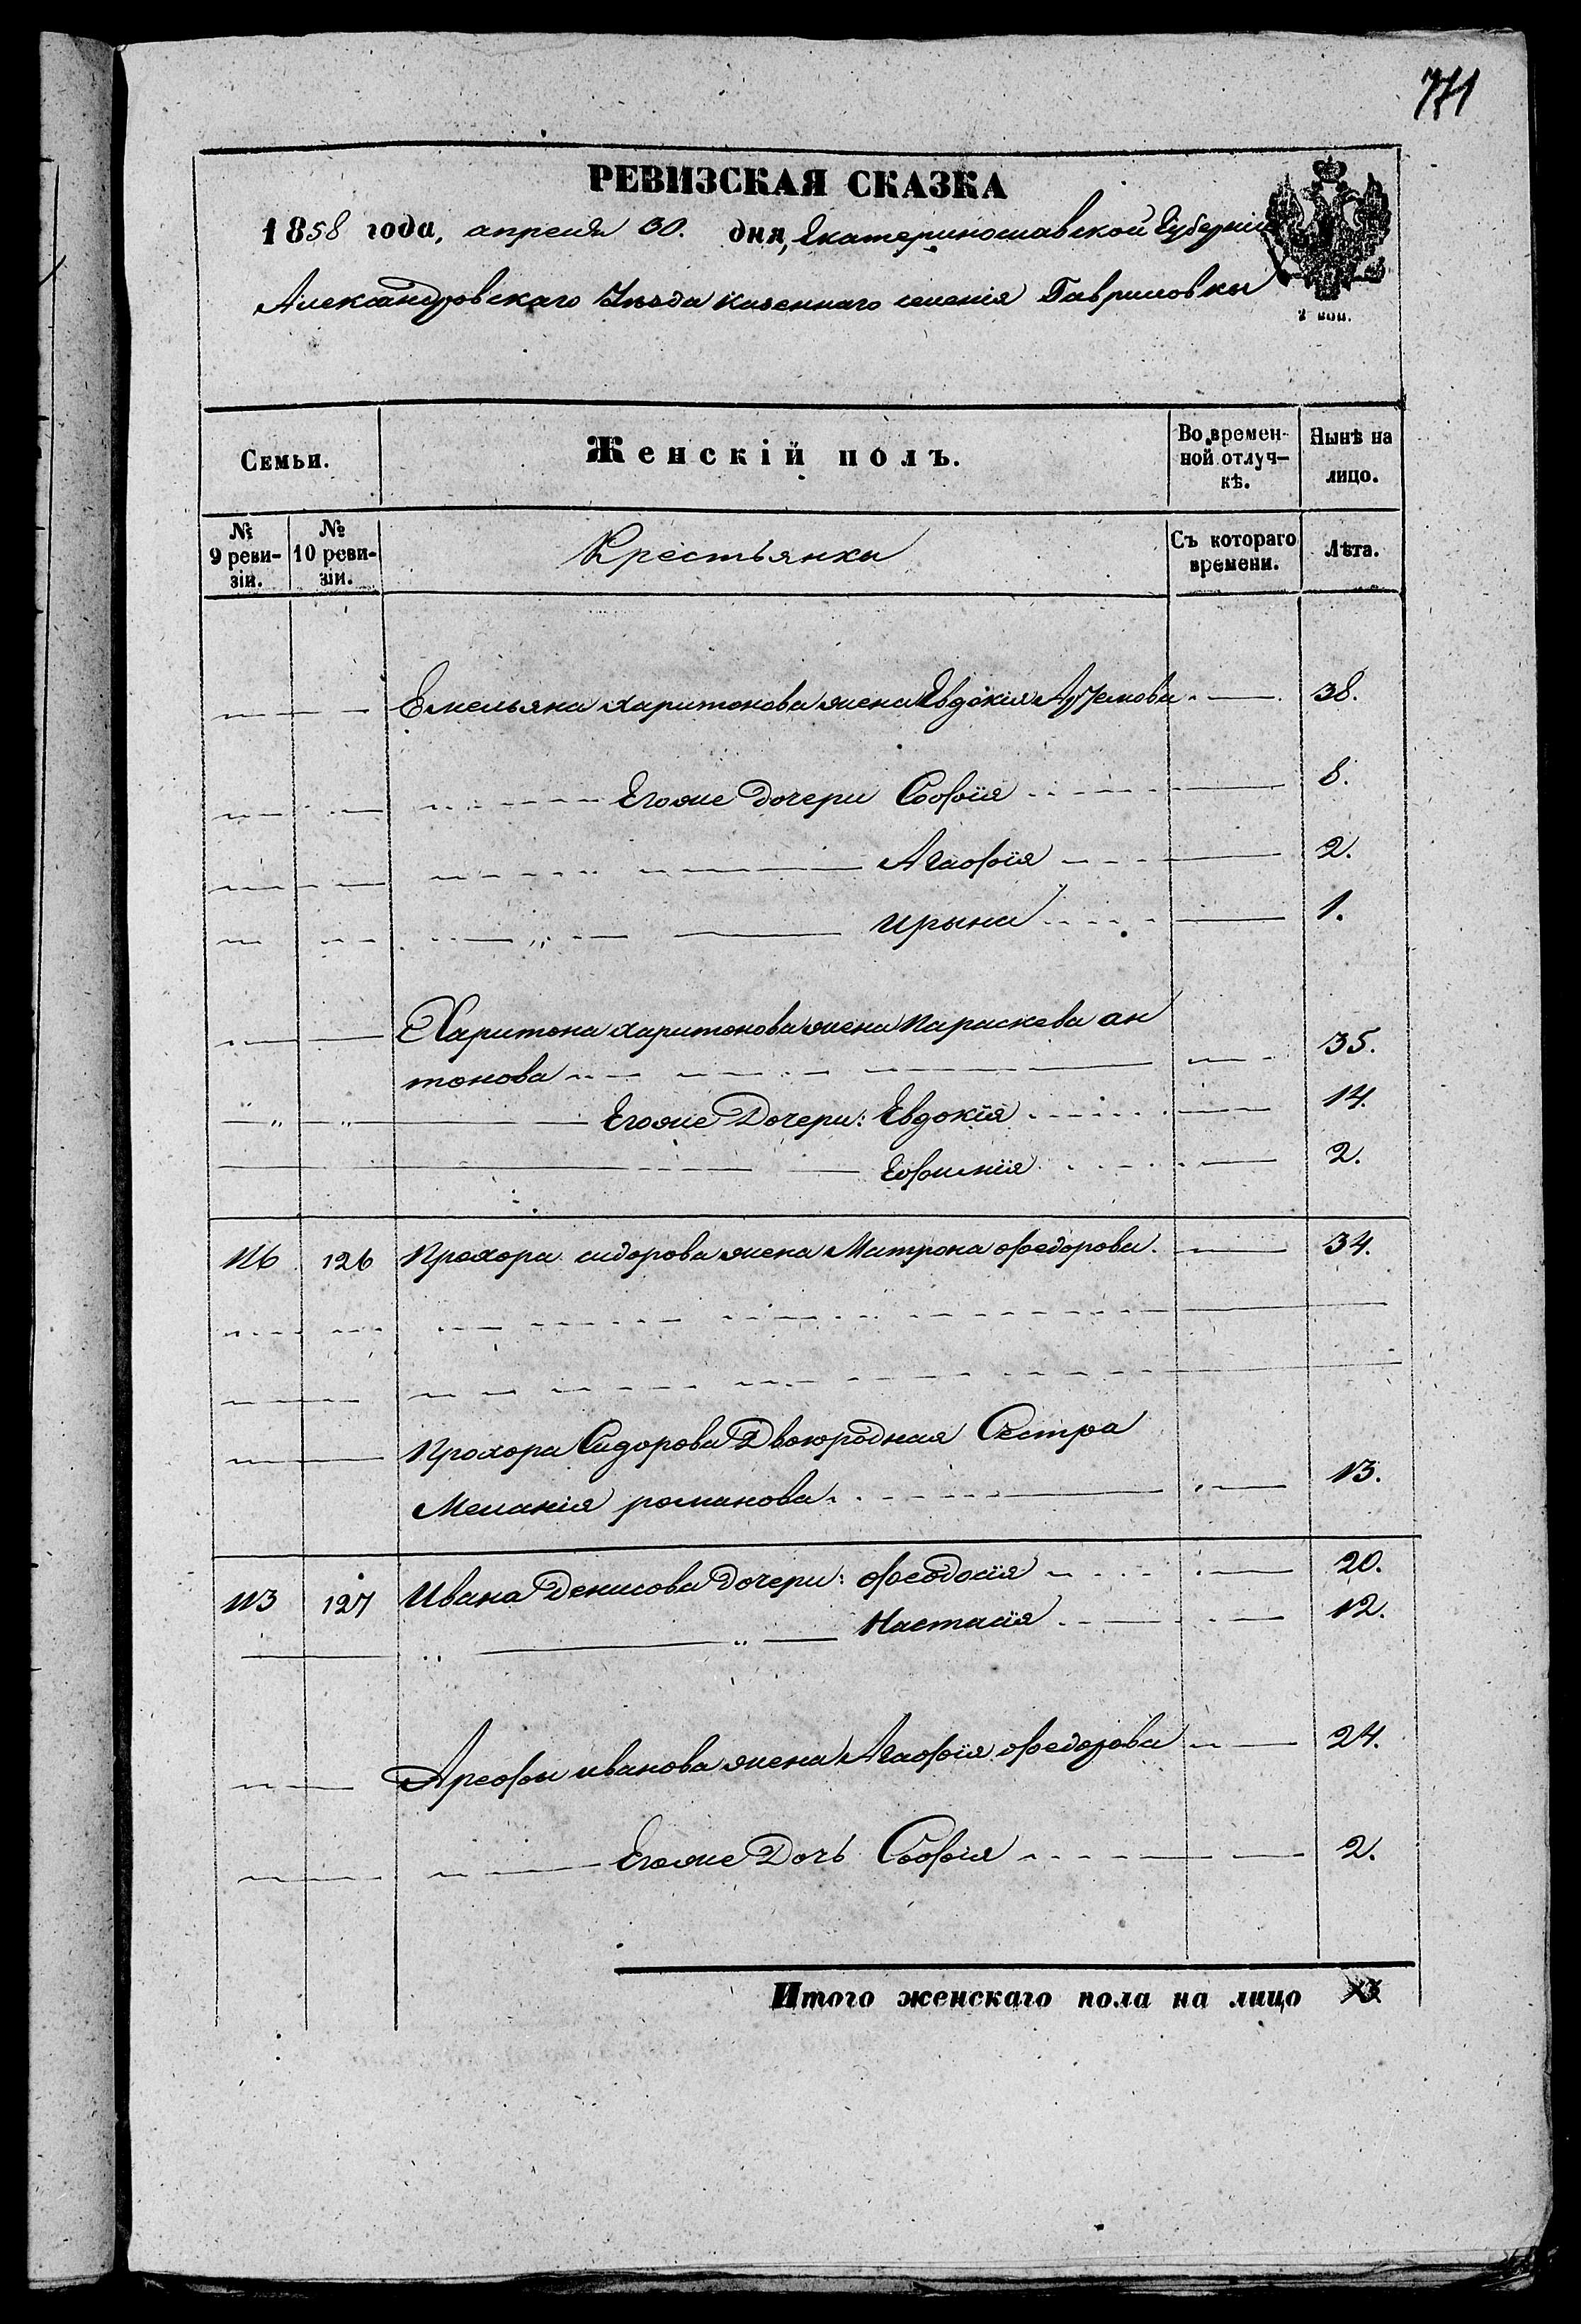 771
РЕВИЗСКАЯ СКАЗКА
1858 года, апреля 30. дня, Екатеринославской Губерніи
Александровскаго Уѣзда казеннаго селенія Гавриловки
2 коп.
Семьи. Женскій полъ. Во времен- Нынѣ на
ной отлуч- лицо.
кѣ.
№ № Крестьянки Съ котораго Лѣта.
9 реви- 10 реви- времени.
зіи. зіи.
Емельяна харитонова жена Евдокія Артемова 38.
Егоже дочери Софія 8.
Агафія 2.
Ирына 1.
Харитона харитонова жена Параскева ан
тонова 35.
Егоже Дочери: Евдокія 14.
Ефимія 2.
116 126 Прохора сидорова жена Матрона федорова. 34.
Прохора Сидорова Двоюродная Сестра
Меланія романова. 13.
113 127 Ивана Денисова Дочери: феодосія 20.
Настасія 12.
Арефы иванова жена Агафія федорова 24.
Егоже Дочь Софія 2.
Итого женскаго пола на лицо